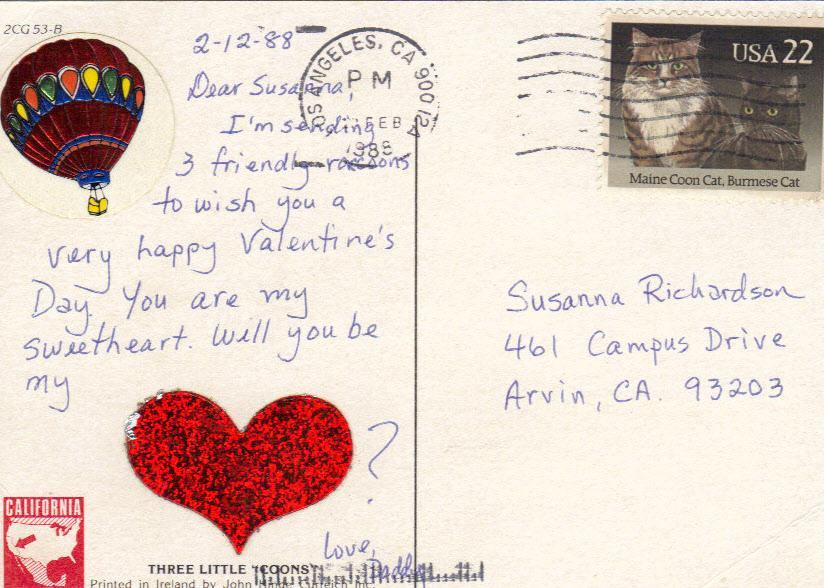 2CG 53-B
2-12-88
Dear Susanna,
I'm sending
3 friendly raccoons
to wish you a
very happy Valentine's
Day. You are my
sweetheart. Will you be
my
?
Love,
Daddy
LOS ANGELES, CA 900 12A
PM
FEB
1988
USA 22
Maine Coon Cat, Burmese Cat
Susanna Richardson
461 Campus Drive
Arvin, CA. 93203
CALIFORNIA
THREE LITTLE "COONS"
Printed in Ireland by John Hinde Curteich Inc.